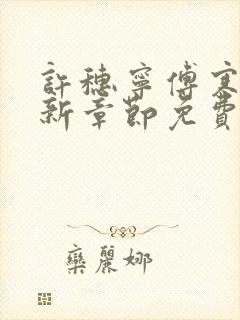 許穗寧傅寒
新章節免費
欒麗娜